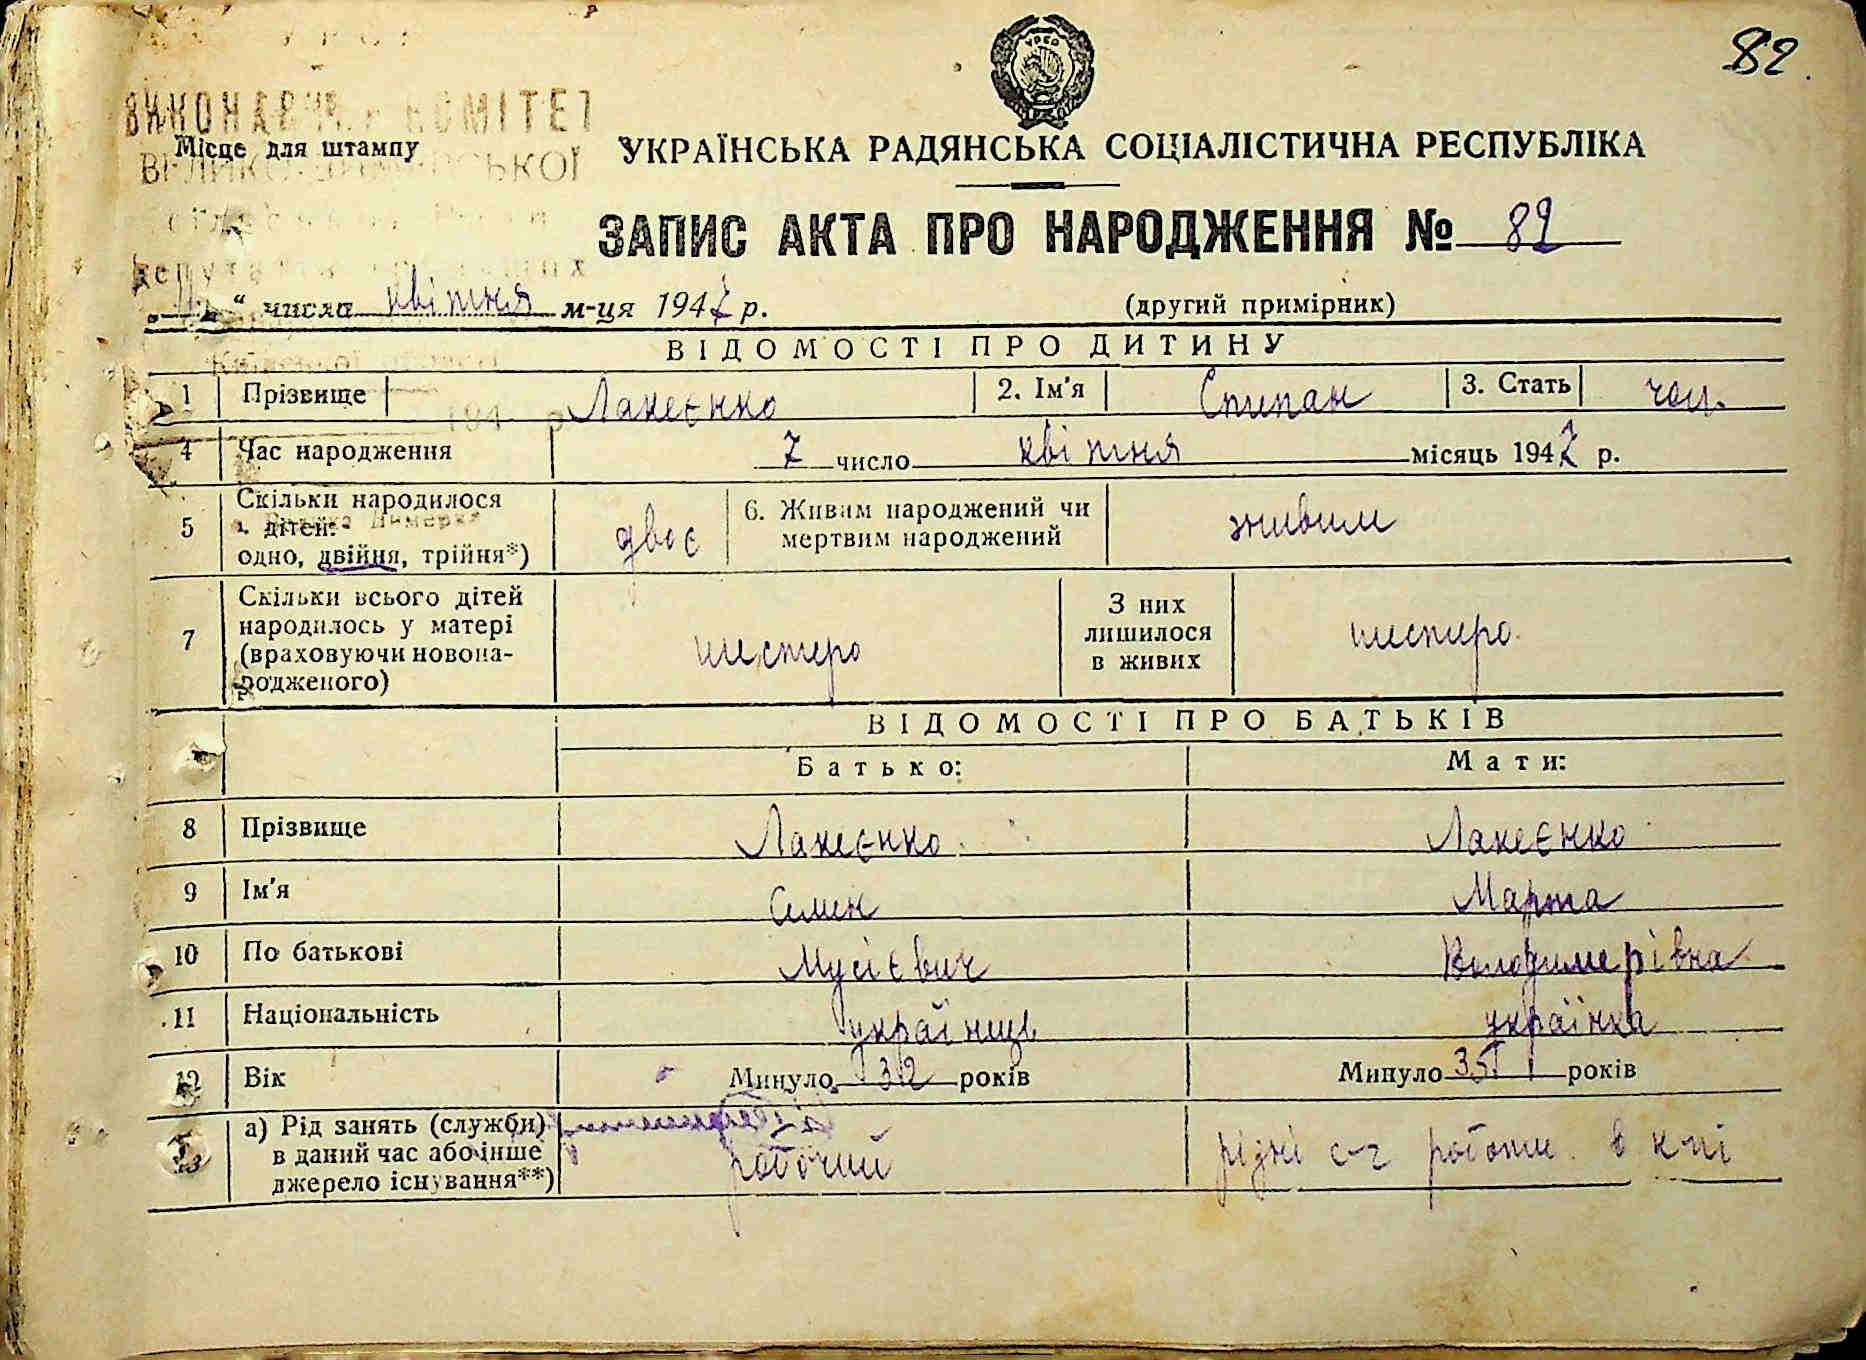 82
ВИКОНАВЧИЙ КОМІТЕТ
Місце для штампу
УРСР
УКРАЇНСЬКА РАДЯНСЬКА СОЦІАЛІСТИЧНА РЕСПУБЛІКА
ЗАПИС АКТА ПРО НАРОДЖЕННЯ № 82
„11“ число квітня м-ця 1947 р. (другий примірник)
ВІДОМОСТІ ПРО ДИТИНУ
1 Прізвище Лакеєнко 2. Ім'я Степан 3. Стать чол.
4 Час народження 7 число квітня місяць 1947 р.
5 Скільки народилося
дітей:
одно, двійня, трійня*) двоє 6. Живим народжений чи
мертвим народжений живим
7 Скільки всього дітей
народилось у матері
(враховуючи новона-
родженого) шестеро З них
лишилося
в живих шестеро
ВІДОМОСТІ ПРО БАТЬКІВ
Батько: Мати:
8 Прізвище Лакеєнко Лакеєнко
9 Ім'я Семен Марта
10 По батькові Мусієвич Володимерівна
11 Національність українець українка
12 Вік Минуло 32 років Минуло 35 років
а) Рід занять (служби)
в даний час або інше
джерело існування**) робочий різні с-г роботи в к-пі